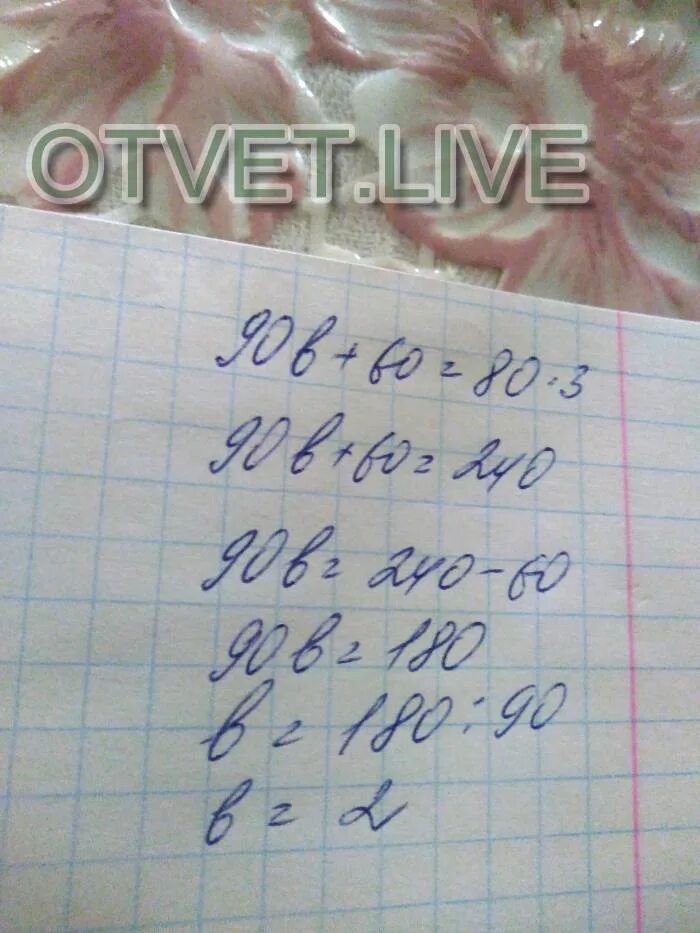 OTVET.LIVE
90в + 60 = 80·3
90в + 60 = 240
90в = 240 - 60
90в = 180
в = 180 : 90
в = 2